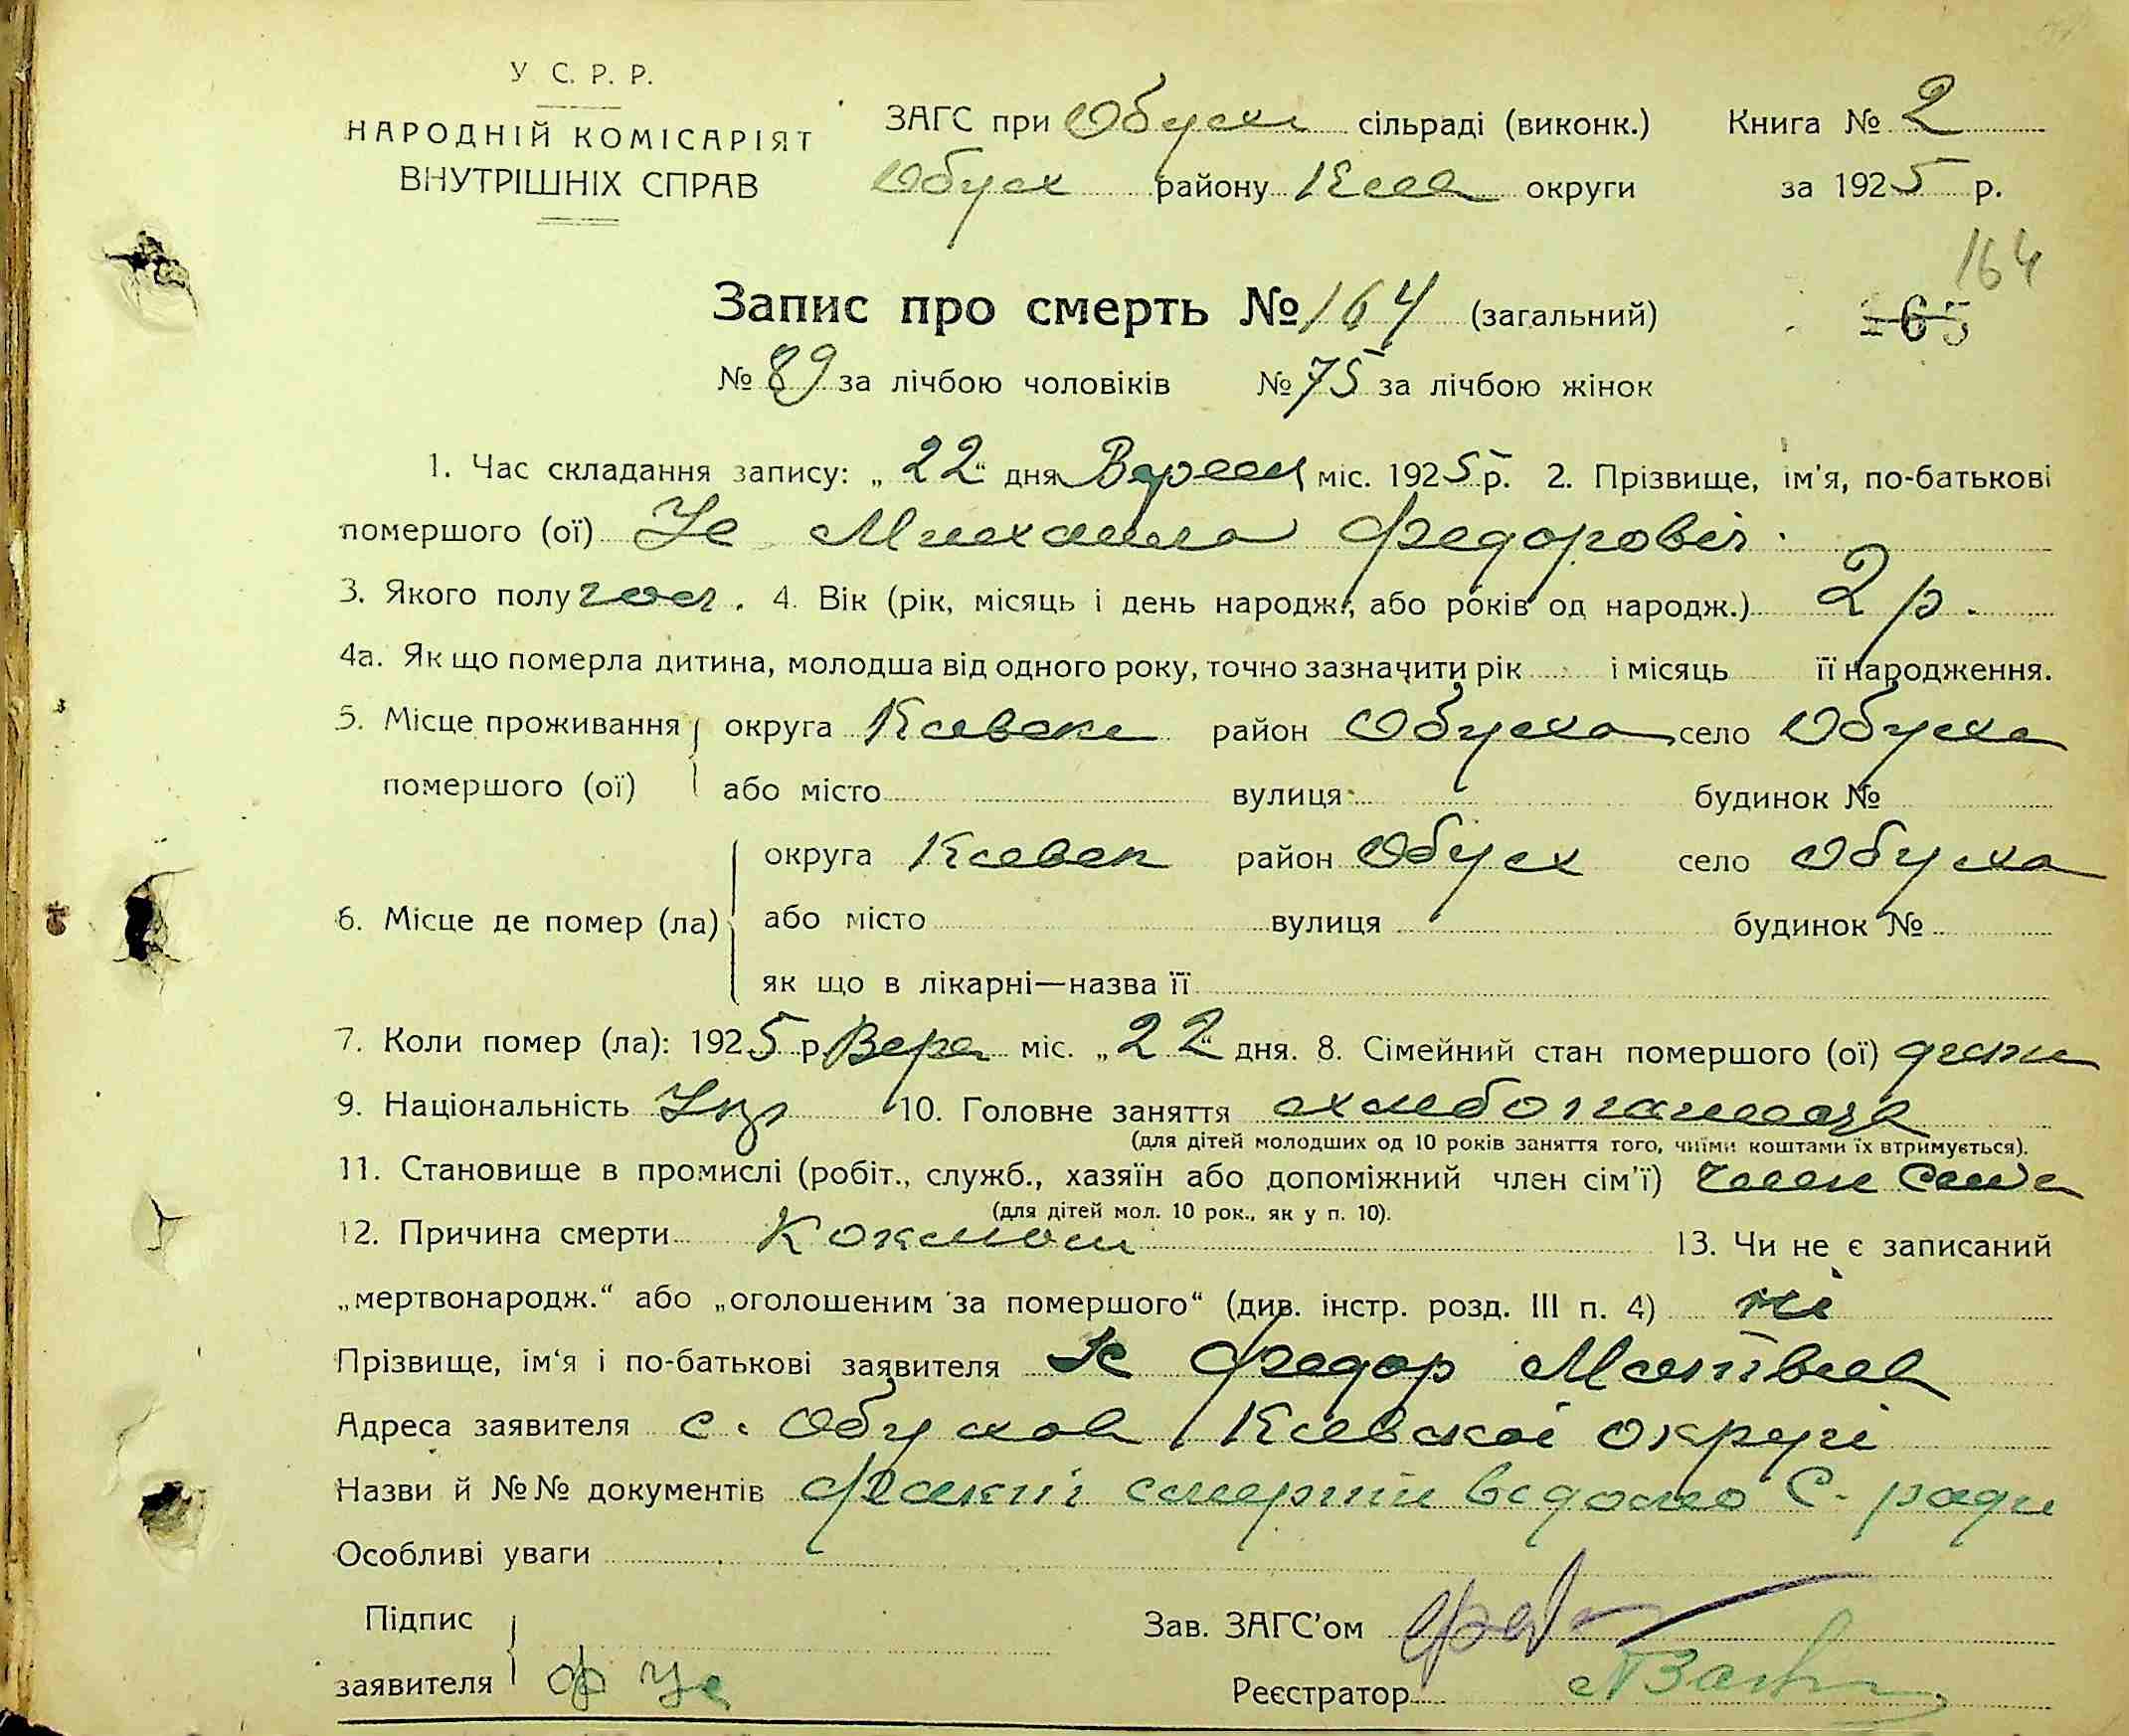 У С. Р. Р.
НАРОДНІЙ КОМІСАРІЯТ
ВНУТРІШНІХ СПРАВ
ЗАГС при Обухи сільраді (виконк.) Книга № 2
Обух району Киев округи за 1925 р.
164
Запис про смерть № 164 (загальний) 165
№ 89 за лічбою чоловіків № 75 за лічбою жінок
1. Час складання запису: „22“ дня Вересн міс. 1925 р. 2. Прізвище, ім'я, по-батькові
помершого (ої) Це Михаило Федоровіч
3. Якого полу чол. 4. Вік (рік, місяць і день народж., або років од народж.) 2 р.
4а. Як що померла дитина, молодша від одного року, точно зазначити рік і місяць її народження.
5. Місце проживання округа Киевск район Обухо село Обухо
помершого (ої) або місто вулиця будинок №
округа Киевск район Обух село Обухо
6. Місце де помер (ла) або місто вулиця будинок №
як що в лікарні—назва її
7. Коли помер (ла): 1925 р. Вере міс. „22“ дня. 8. Сімейний стан помершого (ої)
9. Національність Укр 10. Головне заняття
(для дітей молодших од 10 років заняття того, чиїми коштами їх втримується).
11. Становище в промислі (робіт., служб., хазяїн або допоміжний член сім'ї) член
(для дітей мол. 10 рок., як у п. 10).
12. Причина смерти Коклюш 13. Чи не є записаний
„мертвонародж.“ або „оголошеним за помершого“ (див. інстр. розд. III п. 4) ні
Прізвище, ім'я і по-батькові заявителя Федор Матвіев
Адреса заявителя с. Обухов Киевскоі округі
Назви й №№ документів Факт смерти ведомо С. ради
Особливі уваги
Підпис
заявителя Ф Це
Зав. ЗАГС'ом
Реєстратор